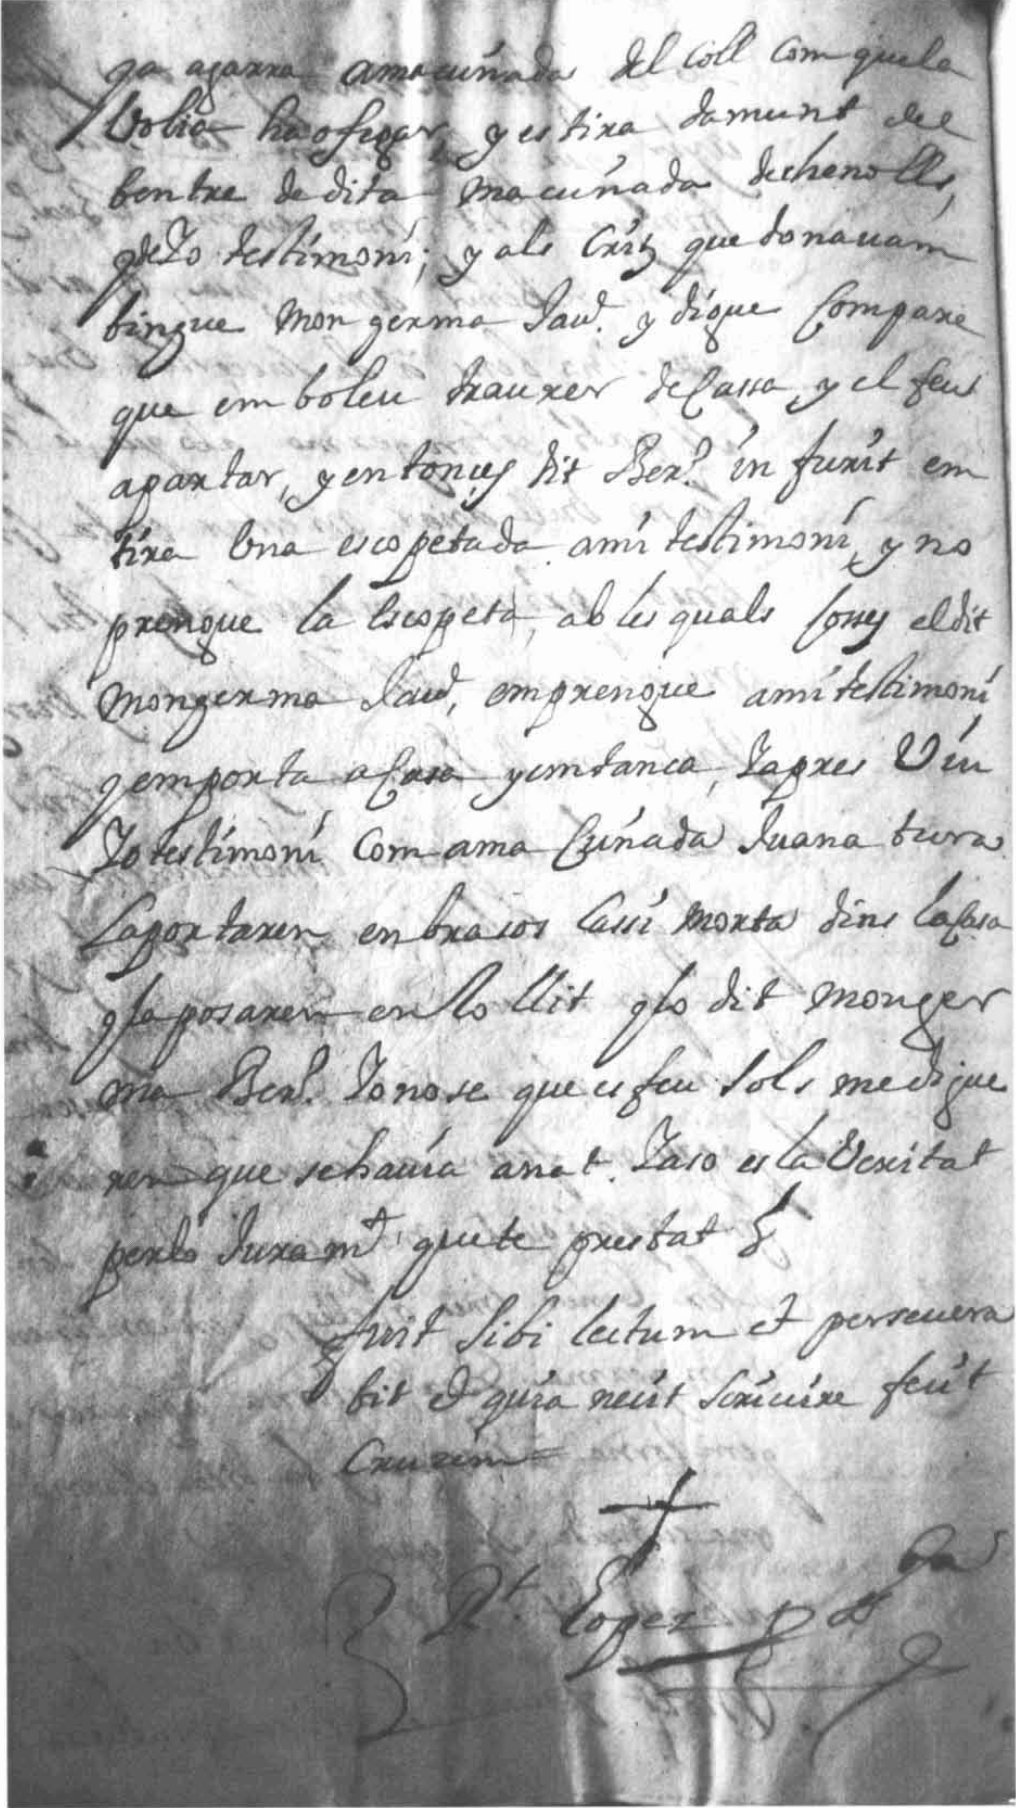 ga agarra amacuñada del Coll Com quela
Volia haofegar, y es tira damunt del
bentre de dita macuñada dechenolls,
y de Jo testimoni; y als Crits que donauam
bingue mon germa Jau.^e y digue Compare
que em boleu traurer deCassa, y el feu
apartar, y entonces dit Ber.^t in furit em
tira Una escopetada ami testimoni, y no
prengue la escopeta, ab les quals Coses eldit
mongerma Jau^e, emprengue ami testimoni
y emporta aCasa y em tanca, Japres Viu
Jo testimoni Com ama Cuñada Juana tura
Laportaren en brasos Casi morta dins laCasa
y la posaren en lo llit y lo dit monger
ma Ber.^t Jo no se que es feu sols me digue
ren que sehauia anat. Jaso es la Veritat
perlo Juram^t que te prestat
fuit sibi lectum et perseuera
bit et quia neüt scriuire feüt
Crucem =
R^t. Lopez